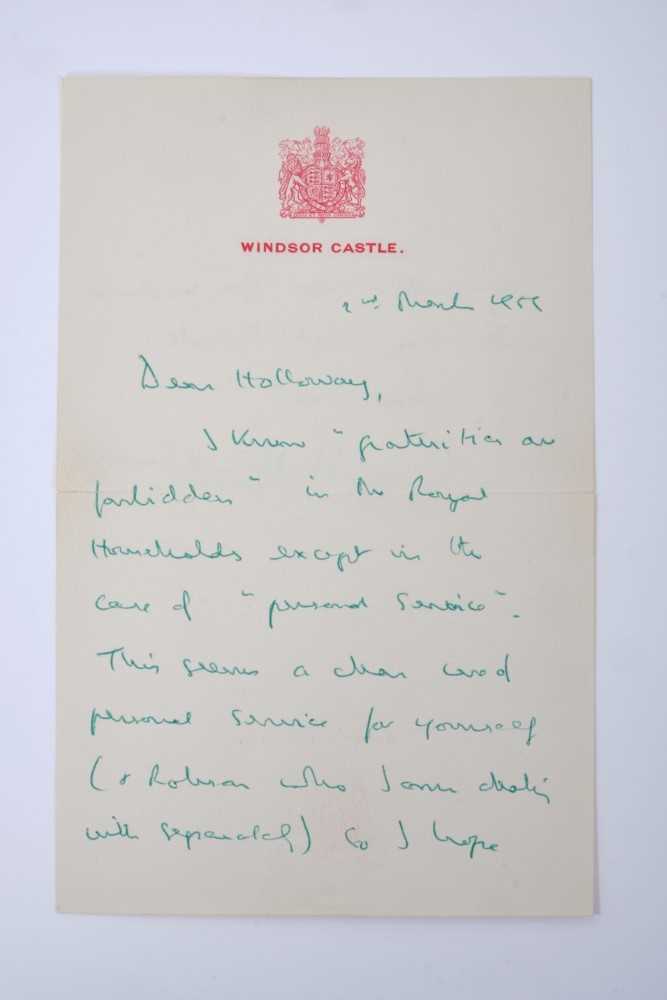 WINDSOR CASTLE.
2nd March
Dear Holloway,
I know "gratuities are
forbidden" in the Royal
Households except in the
case of "personal service".
This seems a clear
personal service for yourself
(& Robson who I am dealing
with separately) So I hope